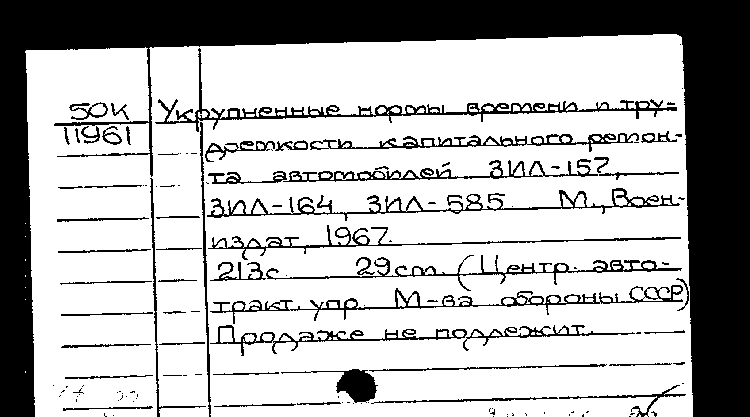 50К Укрупненные нормы времени и тру-
11961 доемкости капитального ремон-
та автомобилей ЗИЛ-157,
ЗИЛ-164, ЗИЛ-585 М., Воен-
издат, 1967.
213с 29см. (Центр. авто-
тракт. упр. М-ва обороны СССР)
Продаже не подлежит.